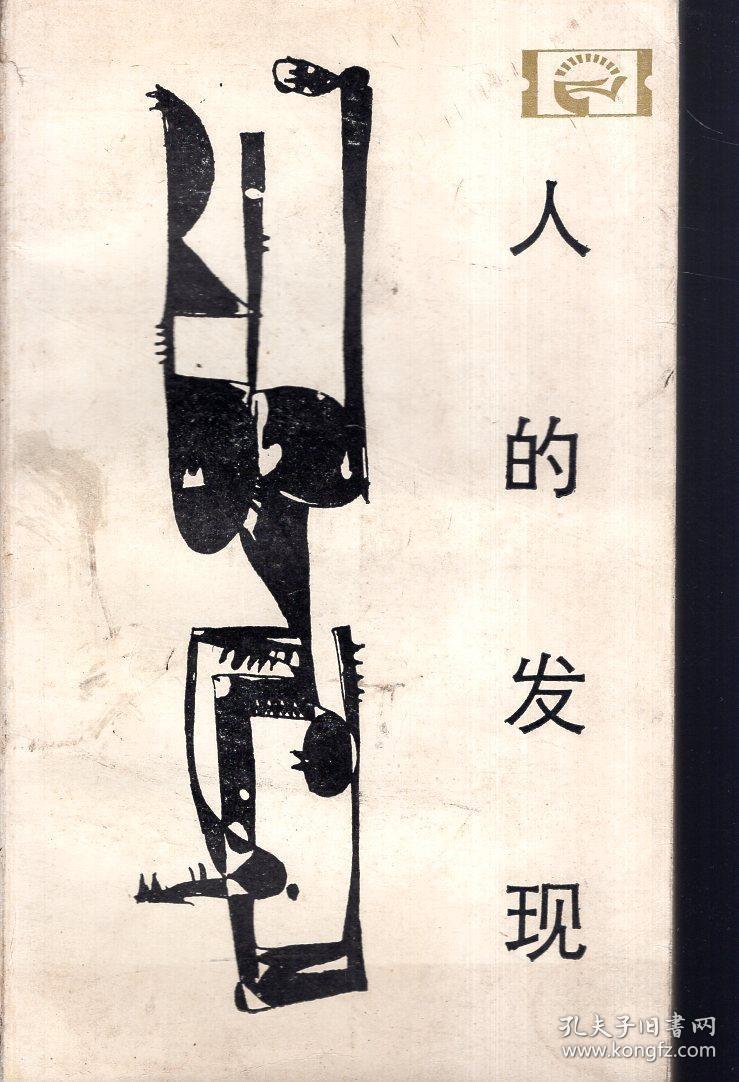 人的发现
孔夫子旧書网
www.kongfz.com